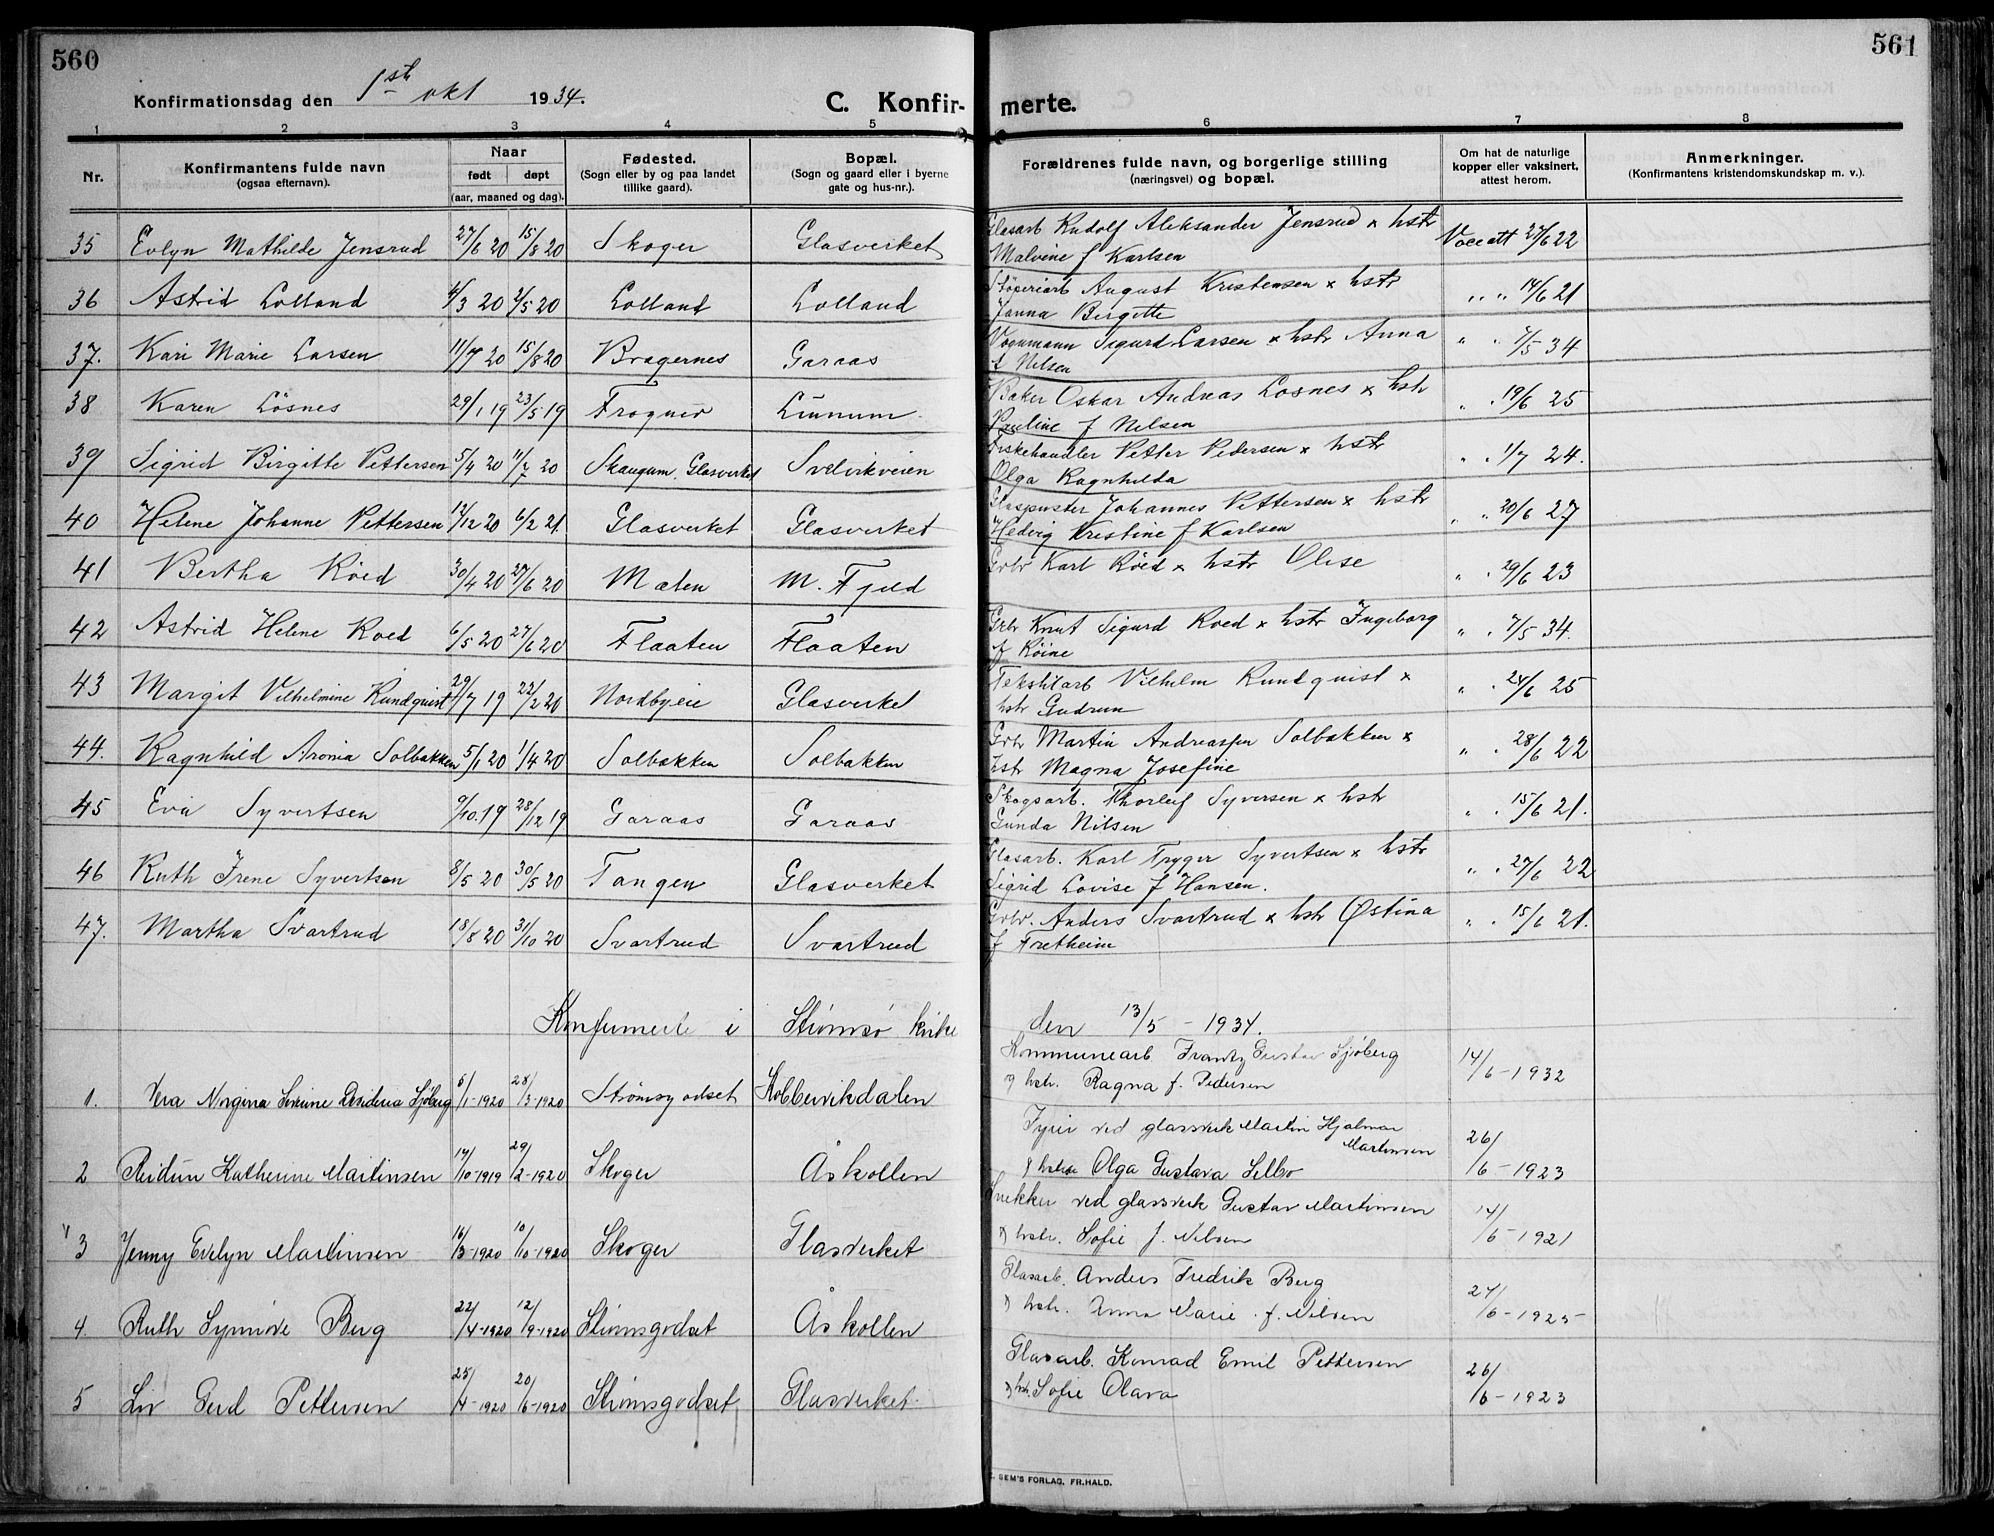 560
561
Konfirmationsdag den 1st okt 1934.
C. Konfirmerte.
1 2 3 4 5 6 7 8
Nr.
Konfirmantens fulde navn
(ogsaa efternavn).
Naar
født døpt
(aar, maaned og dag).
Fødested.
(Sogn eller by og paa landet
tillike gaard).
Bopæl.
(Sogn og gaard eller i byerne
gate og hus-nr.).
Forældrenes fulde navn, og borgerlige stilling
(næringsvei) og bopæl.
Om hat de naturlige
kopper eller vaksinert,
attest herom.
Anmerkninger.
(Konfirmantens kristendomskundskap m. v.).
35 Evlyn Mathilde Jensrud 27/6 20 15/8 20 Skoger Glasverket Glasarb Rudolf Aleksander Jensrud x hstr
Malvine f Karlsen
Vacc att 27/6 22
36 Astrid Lolland 4/3 20 2/5 20 Lolland Lolland Støperiarb August Kristensen x hstr
Janna Birgitte
" " 14/6 21
37. Kari Marie Larsen 11/7 20 15/8 20 Bragernes Garaas Vognmann Sigurd Larsen x hstr Anna
f Nelsen
" " 7/5 34
38 Karen Løsnes 29/1 19 23/5 19 Frogner Linnum Baker Oskar Andreas Løsnes x hstr
Pauline f Nelsen
" " 19/6 25
39 Sigrid Birgitte Pettersen 5/4 20 11/7 20 Skaugum, Glasverket Svelvikveien Fiskehandler Petter Pedersen x hstr
Olga Ragnhilda
" " 1/7 24.
40 Helene Johanne Pettersen 12/12 20 6/2 21. Glasverket Glasverket Glaspuster Johannes Pettersen x hstr
Hedvig Kristine f Karlsen
" " 20/6 27
41 Bertha Røed 30/4 20 27/6 20 Mæten M. Fjeld Grbr Karl Røed x hstr Olise
" " 29/6 23
42 Astrid Helene Roed 6/5 20 27/6 20 Flaaten Flaaten Grbr Knut Sigurd Roed x hstr Ingeborg
f Røine
" " 7/5 34.
43 Margit Vilhelmine Rundquist 29/7 19 22/2 20 Nordbyeie Glasverket Tekstilarb Vilhelm Rundquist x
hstr Gudrun
" " 24/6 25
44. Ragnhild Aronia Solbakken 5/1 20 1/4 20 Solbakken Solbakken Grbr Martin Andreassen Solbakken x
hstr Magna Josefine
" " 28/6 22
45 Eva Syvertsen 9/10.19 28/12 19 Garaas Garaas Skogsarb. Thorleif Syversen x hstr
Gunda Nilsen
" " 15/6 21.
46 Ruth Irene Syvertsen 8/5 20 30/5 20 Tangen Glasverket Glasarb. Karl Tryger Syvertsen x hstr
Sigrid Lovise f Hansen.
" " 27/6 22
47. Martha Svartrud 18/8 20 31/10 20 Svartrud Svartrud Grbr. Anders Svartrud x hstr Østina
f Fretheim
" " 15/6 21.
Konfirmerte i Strømsø kirke den 13/5 - 1934.
1. Vera Norgina Severine Desideria Sjöberg 5/1-1920 28/3-1920 Strömsgodset Kobbervikdalen Kommunearb Frantz Gustav Sjöberg
og hstr. Ragna f. Pedersen
14/6-1932
2 Reidun Katherine Martinsen 14/10-1919 29/2-1920 Skoger Åskollen Fyrer ved glassverk Martin Hjalmar
Martinsen
g hstr Olga Gustava Selbo
26/6-1923
3 Jenny Evelyn Martinsen 16/3-1920 10/10-1920 Skoger Glasverket Snekker ved glassverk Gustav Martinsen
og hstr. Sofie f. Nilsen
14/6-1921
4. Ruth Synnöve Berg 22/4-1920 12/9-1920 Strömsgodset Åskollen Glasarb. Anders Fredrik Berg
og hstr. Anna Marie f. Nilsen
24/6-1925
5 Liv Gerd Pettersen 25/4-1920 20/6-1920 Strömsgodset Glasverket. Glasarb. Konrad Emil Pettersen
og hstr. Sofie Olava
26/6-1923
SEM'S FORLAG, FR.HALD.